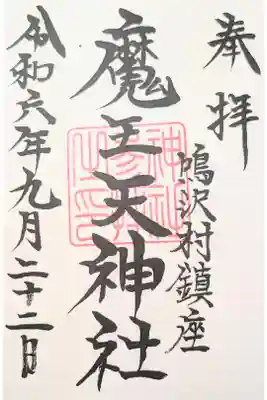 奉拝
鳴沢村鎮座
魔王天神社
令和六年九月二十二日